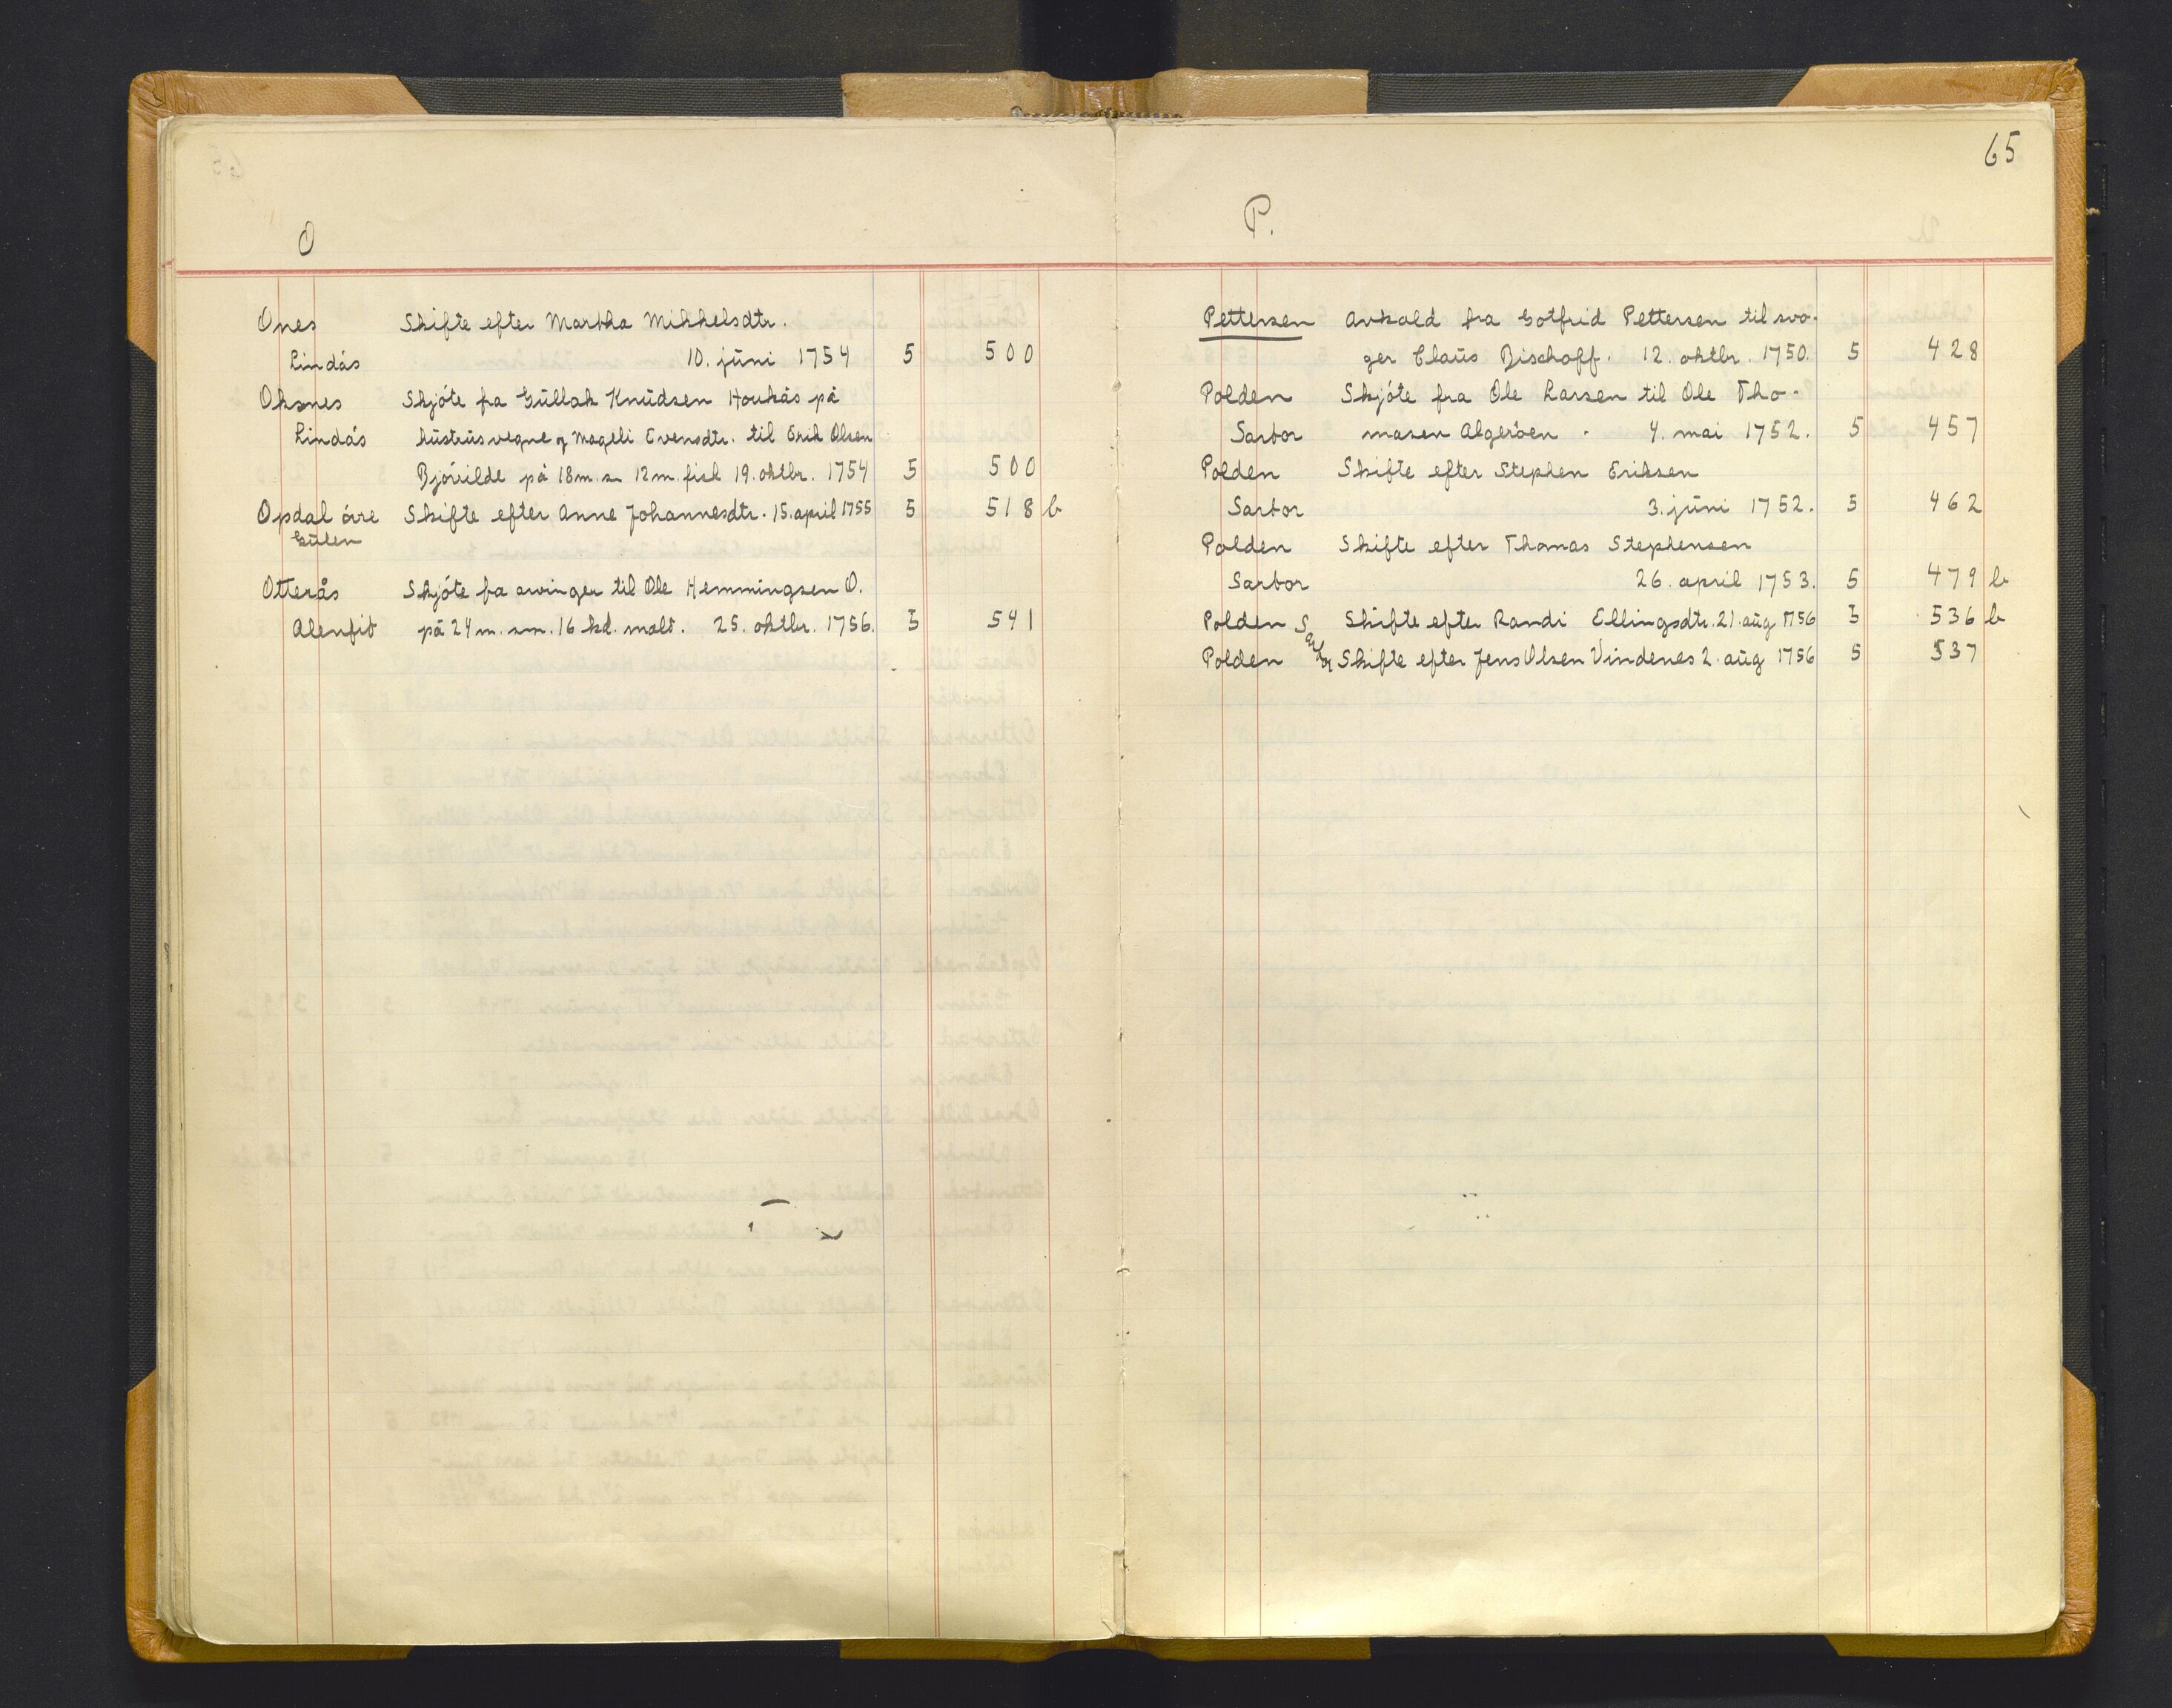 O
Ones Skifte efter Martha Mikkelsdtr.
Lindås 10. juni 1754 5 500
Oksnes Skjöte fra Gullak Knudsen Houkås på
Lindås hustrus vegne og Mageli Evensdtr. til Erik Olsen
på 18 m. s. 12 m. fisk 19. oktbr. 1754 5 500
Opdal övre Skifte efter Anne Johannesdtr. 15. april 1755 5 518 b
Gulen
Otterås Skjöte fra arvinger til Ole Hemmingsen O.
Alenfit på 24 m. sm. 16 kd. malt. 25. oktbr. 1756. 5 541
65
P.
Pettersen Avkald fra Gotfrid Pettersen til svo-
ger Claus Bischoff. 12. oktbr. 1750. 5 428
Polden Skjöte fra Ole Larsen til Ole Tho-
Sartor masen Algeröen. 4. mai 1752. 5 457
Polden Skifte efter Stephen Eriksen
Sartor 3. juni 1752. 5 462
Polden Skifte efter Thomas Stephensen
Sartor 26. april 1753. 5 479 b
Polden Sartor Skifte efter Randi Ellingsdtr. 21. aug 1756 5 536 b
Polden Skifte efter Jens Olsen Vindenes 2. aug 1756 5 537